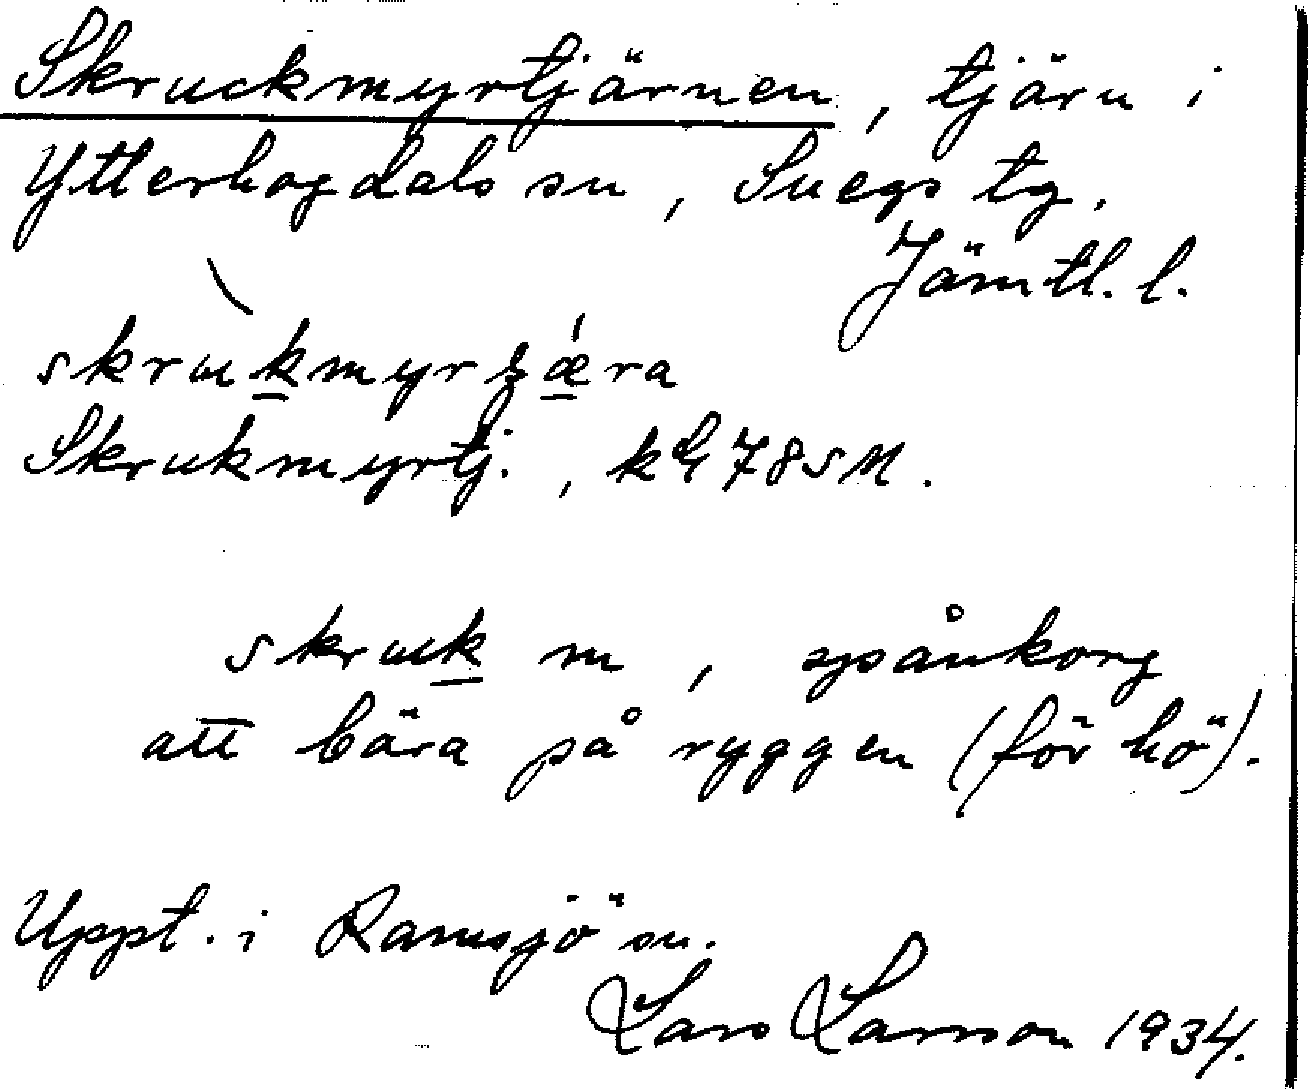 Skruckmyrtjärnen, tjärn i
Ytterhogdals sn, Svegs tg,
Jämtl. l.
Skrukmyrtj., kbl 78 SM.
skruk m, spånkorg
att bära på ryggen (för hö).
Uppt. i Ramsjö sn.
Lars Larsson 1934.